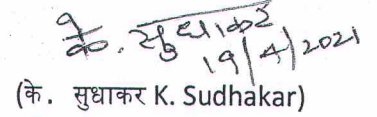 के. सुधाकर
19/4/2021
(के. सुधाकर K. Sudhakar)